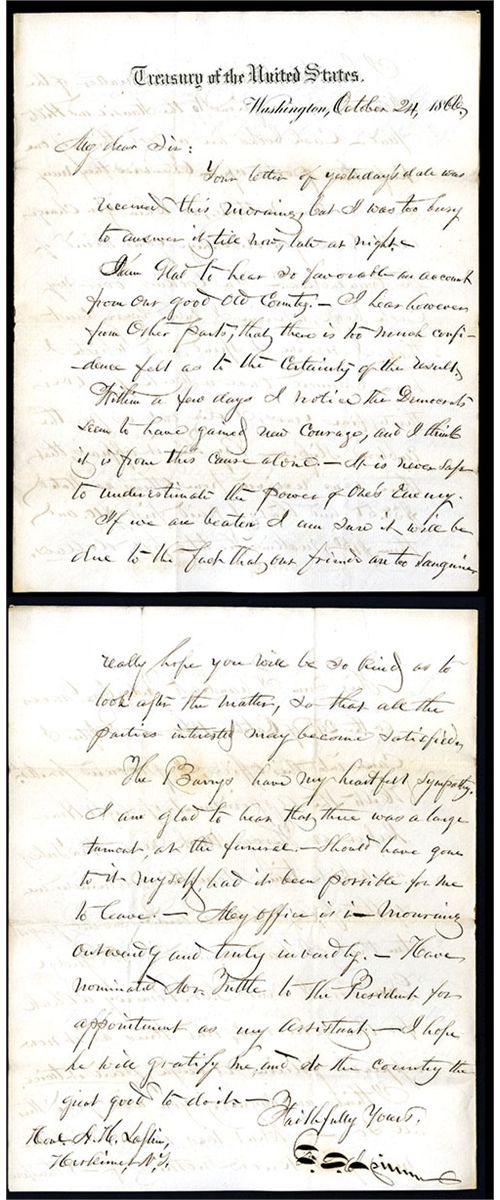 Treasury of the United States.
Washington, October 24, 1866,
My dear Sir:
Your letter of yesterday's date was
received this morning, but I was too busy
to answer it till now, late at night.
I am Glad to hear so favorable an account
from our good Old County. — I hear however
from Other parts, that there is too much confi-
dence felt as to the Certainty of the result,
Within a few days I notice the Democrats
seem to have gained new Courage, and I think
it is from this cause alone. — It is never safe
to underestimate the power of One's Enemy.
If we are beaten I am sure it will be
due to the fact that our friends are too Sanguine
really hope you will be so kind as to
look after the matter, so that all the
parties interested may become satisfied,
The Barrys have my heartfelt sympathy.
I am glad to hear that there was a large
turnout, at the funeral. — Should have gone
to it myself, had it been possible for me
to leave. — My office is in Mourning
outwardly and truly inwardly. — Have
nominated Mr. Tuttle to the President for
appointment as my Assistant — I hope
he will gratify me, and do the country the
great good to do it. —
Faithfully Yours.
Hon. A. H. Laflin,
Herkimer, N.Y.
F. E. Spinner